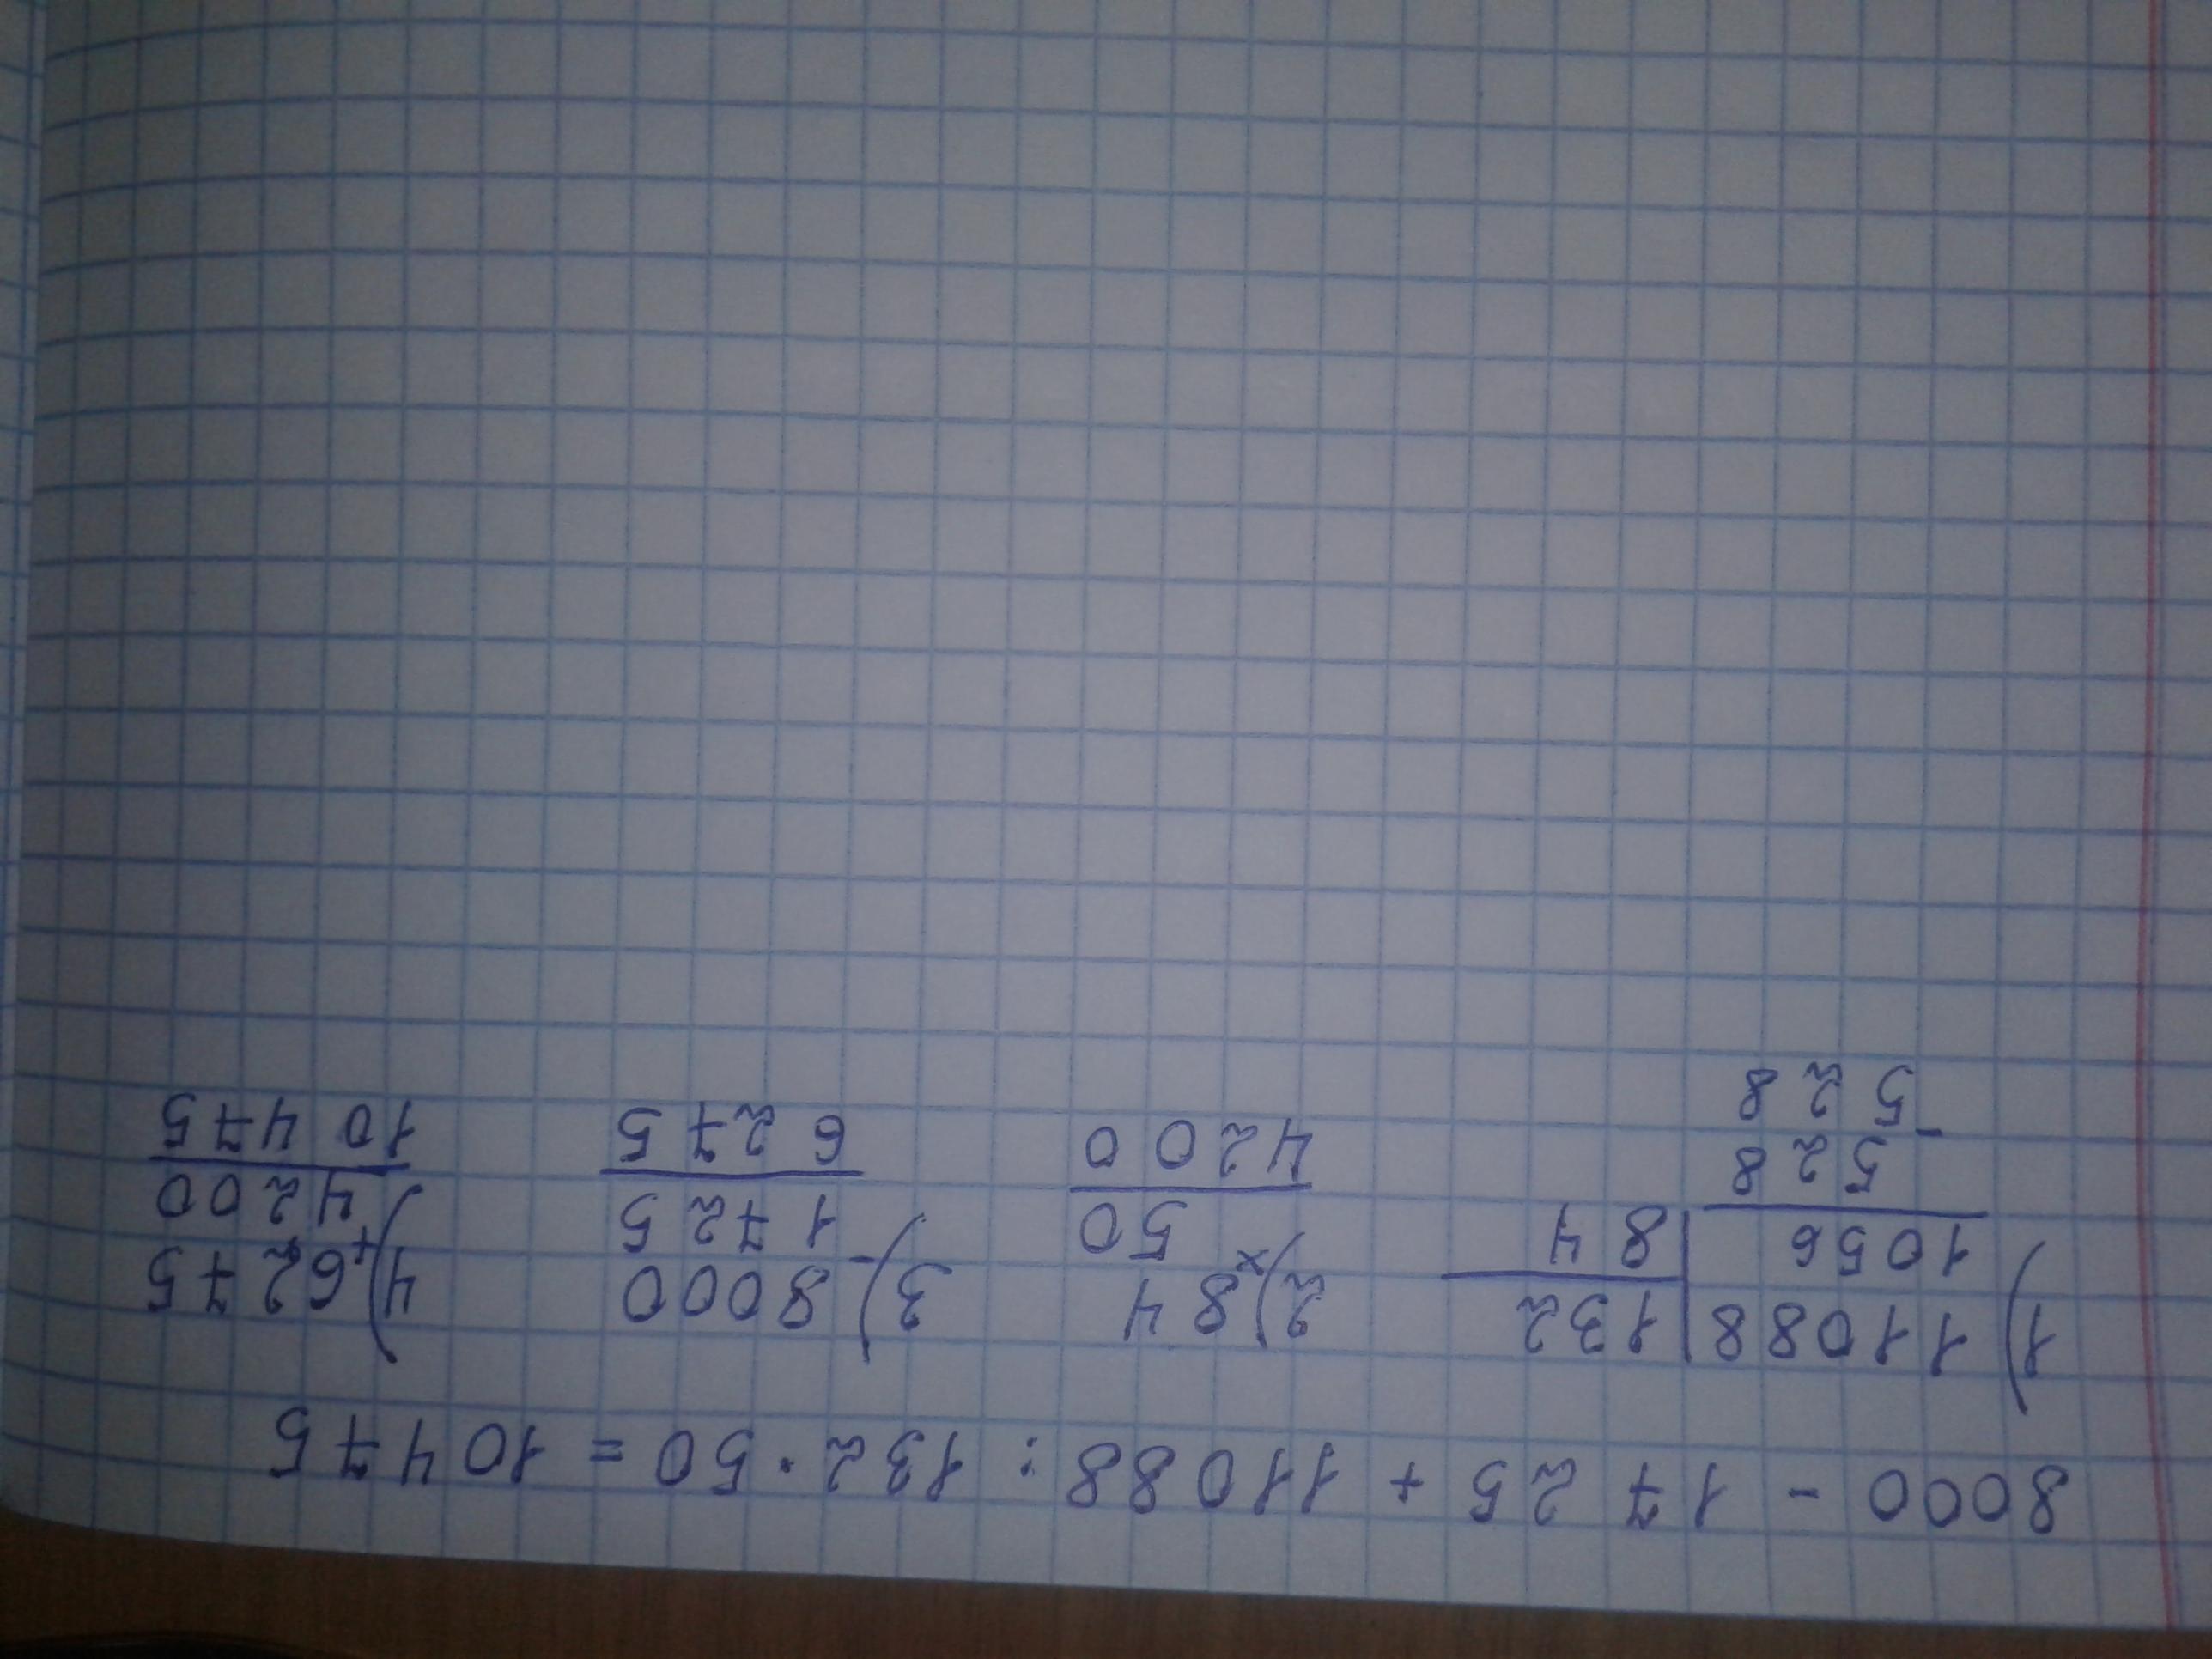 8000 - 1725 + 11088 : 132 · 50 = 10475
1) 11088 | 132
1056 | 84
528
- 528
2) 84
× 50
4200
3) 8000
- 1725
6275
4) 6275
+ 4200
10475